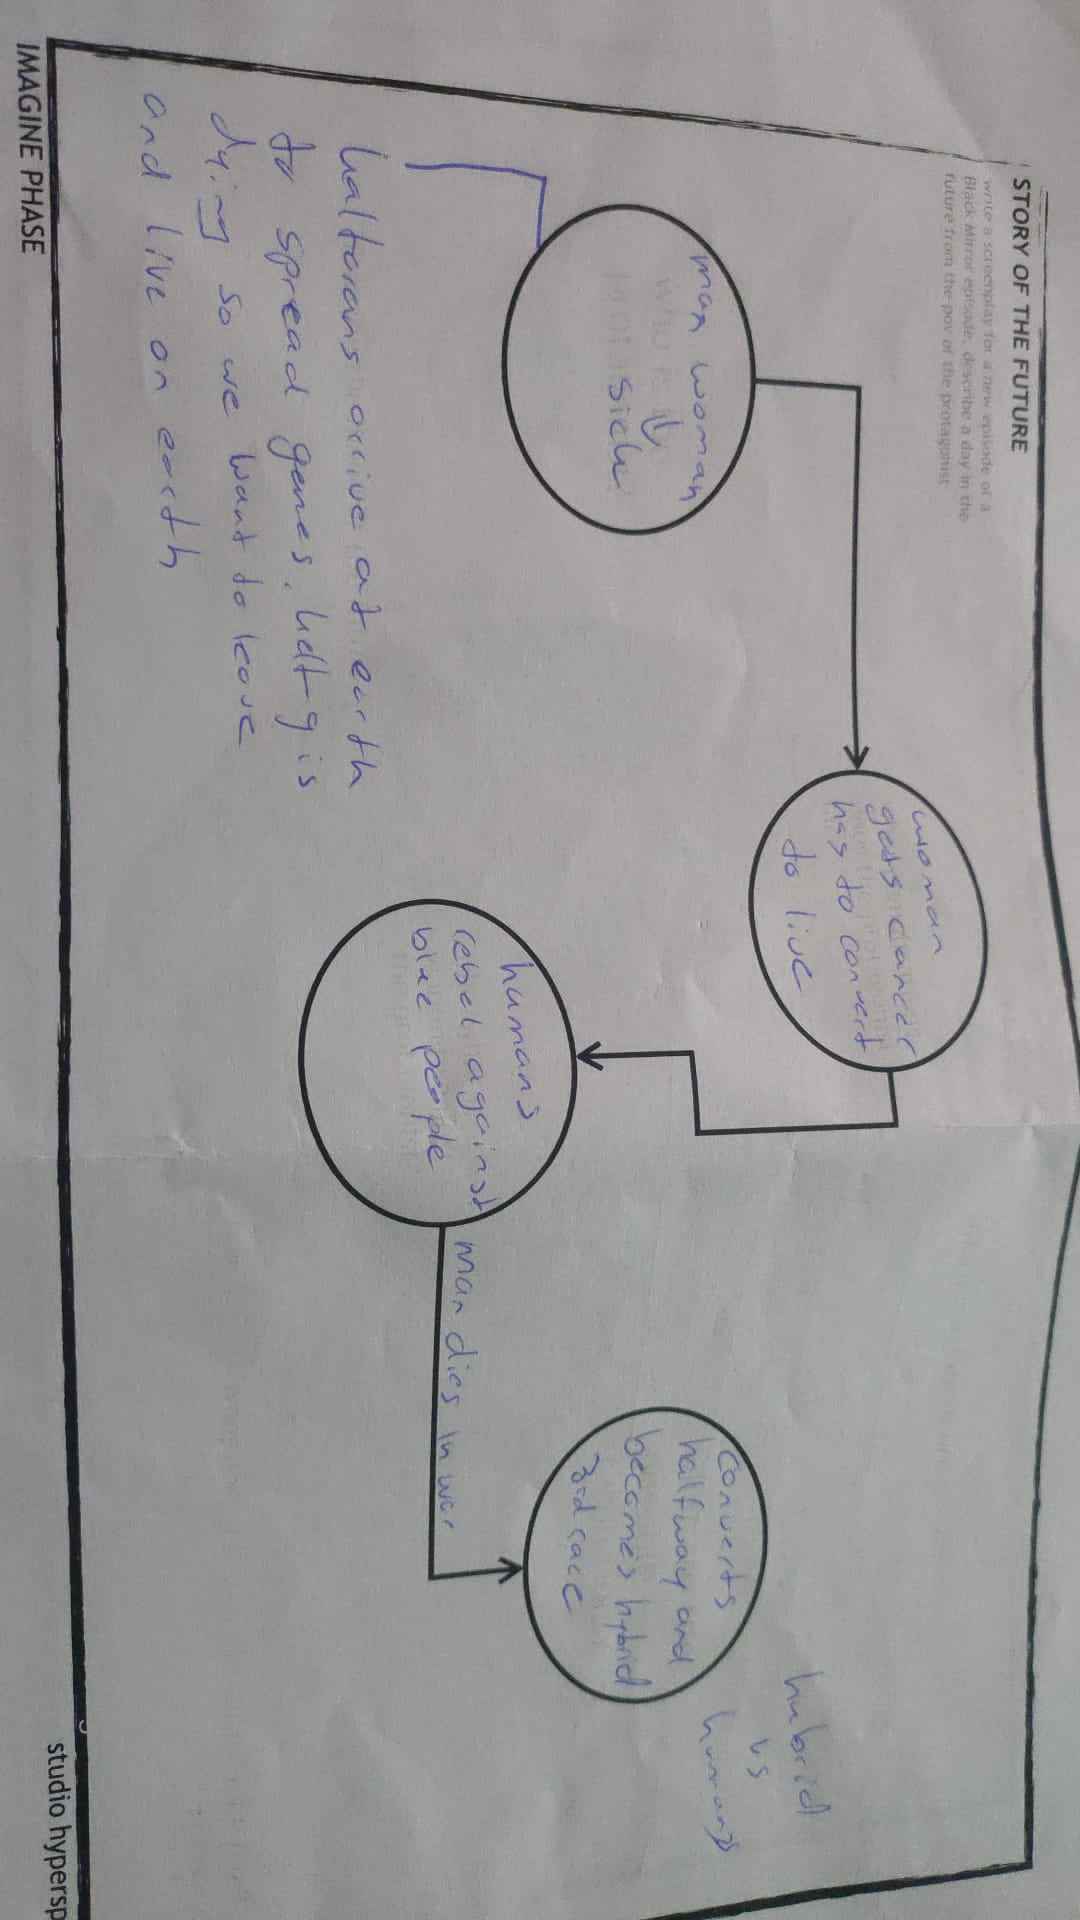 STORY OF THE FUTURE
write a screenplay for a new episode of a
Black Mirror episode, describe a day in the
future from the pov of the protagonist
man woman
sick
woman
gets cancer
has to convert
to live
humans
rebel against
blue people
man dies in war
converts
halfway and
becomes hybrid
3rd race
hubrid
vs
humans
haltorans arrive at earth
to spread genes. halt g is
dying so we want to leave
and live on earth
IMAGINE PHASE
studio hypersp